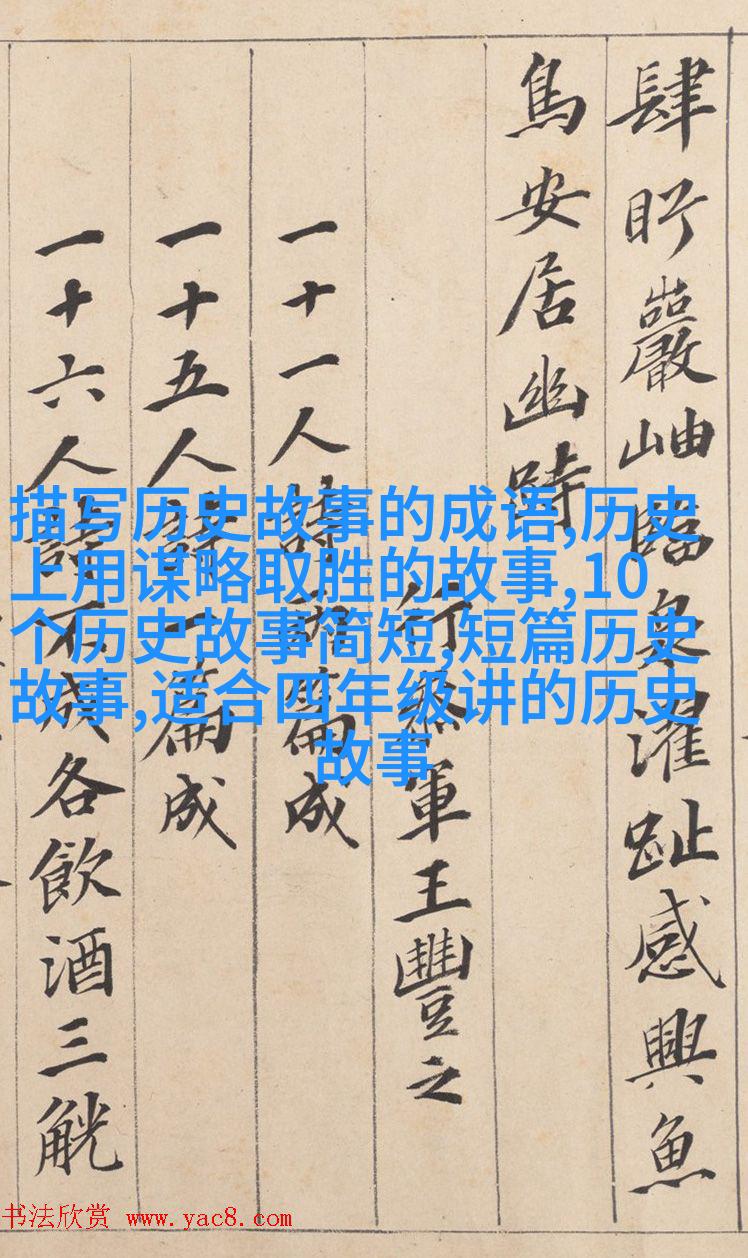 肆眄巖岫臨泉濯趾感興魚
鳥安居幽
行參軍王豐之
一十一人詩兩篇成
一十五人詩一篇成
一十六人詩不成各飲酒三觥
描写历史故事的成语,历史
上用谋略取胜的故事,10
个历史故事简短,短篇历史
故事,适合四年级讲的历史
故事
书法欣赏 www.yac8.com